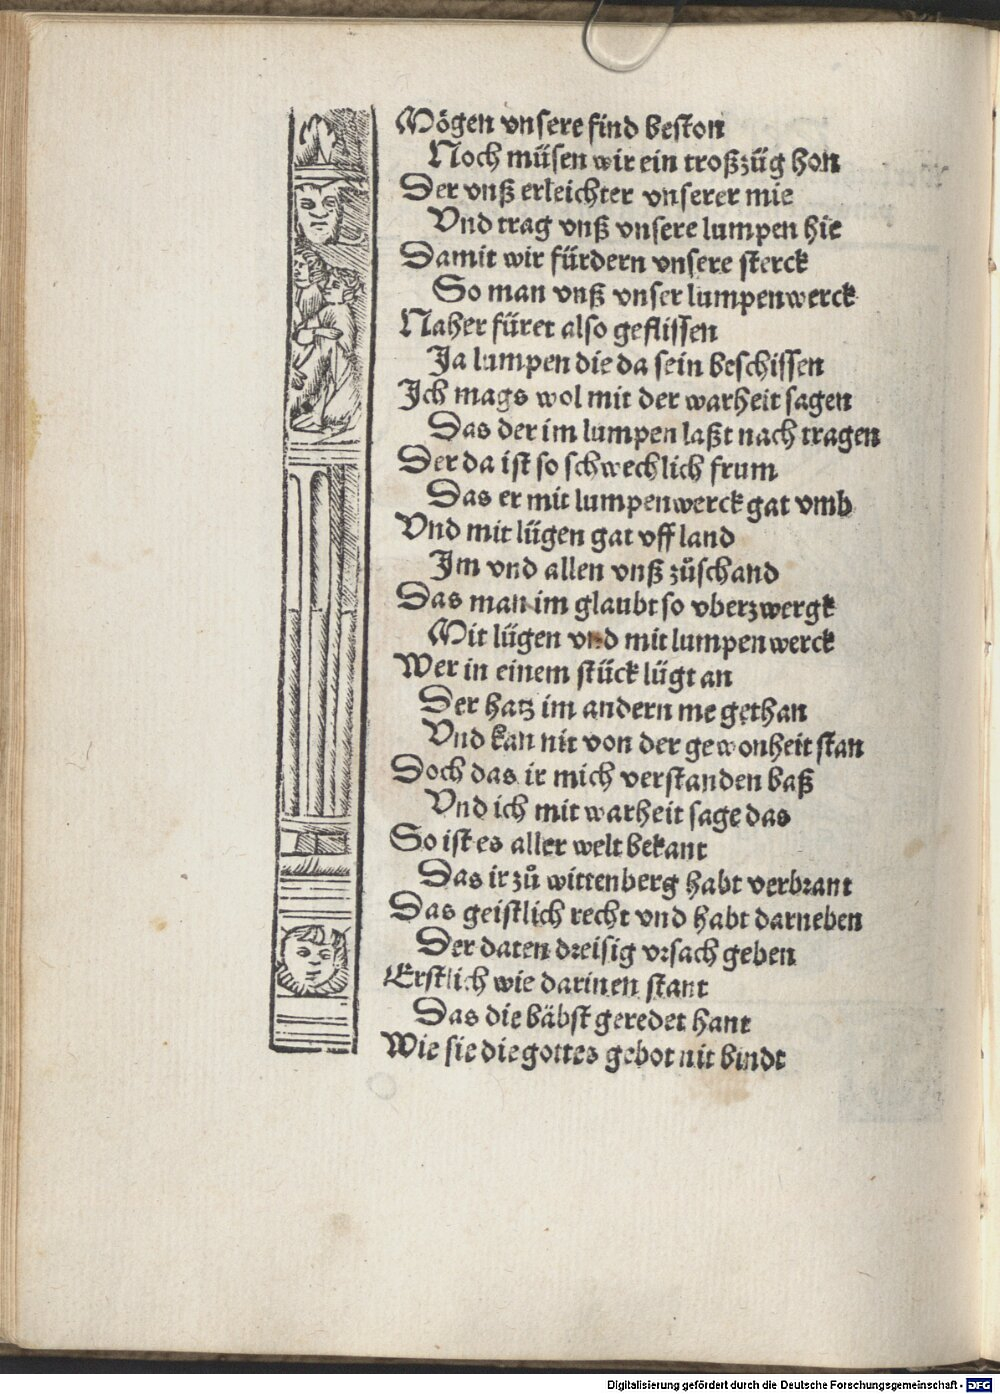 Mögen vnsere find beston
Noch müsen wir ein troßzüg hon
Der vnß erleichter vnserer mie
Vnd trag vnß vnsere lumpen hie
Damit wir fürdern vnsere sterck
So man vnß vnser lumpenwerck
Naher füret also geflissen
Ja lumpen die da sein beschissen
Ich mags wol mit der warheit sagen
Das der im lumpen laßt nach tragen
Der da ist so schwechlich frum
Das er mit lumpenwerck gat vmb
Vnd mit lügen gat vff land
Im vnd allen vnß zůschand
Das man im glaubt so vberzwergk
Mit lügen vnd mit lumpen werck
Wer in einem stück lügt an
Der hatz im andern me gethan
Vnd kan nit von der gewonheit stan
Doch das ir mich verstanden baß
Vnd ich mit warheit sage das
So ist es aller welt bekant
Das ir zů wittenberg habt verbrant
Das geistlich recht vnd habt darneben
Der daten dreisig vrsach geben
Erstlich wie darinen stant
Das die bäbst geredet hant
Wie sie die gottes gebot nit bindt
Digitalisierung gefördert durch die Deutsche Forschungsgemeinschaft - DFG